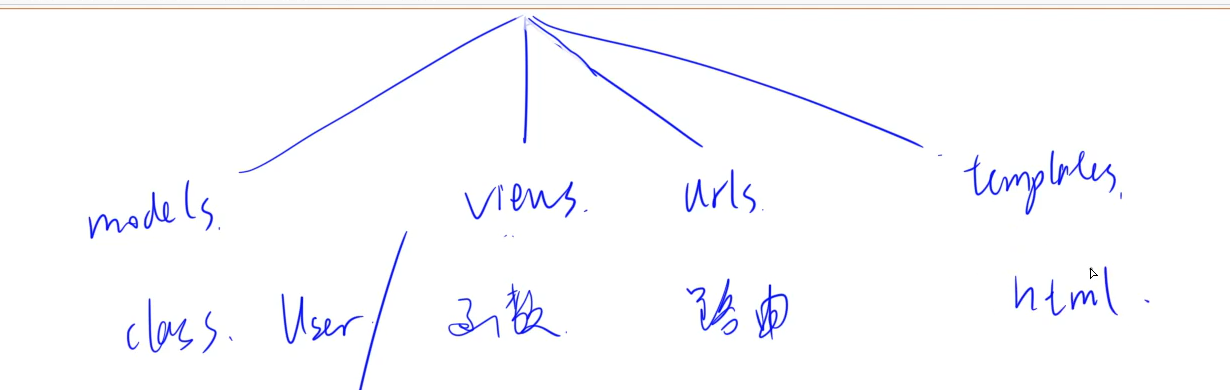 models. views. urls. templates.
class. User 函数. 路由 html.